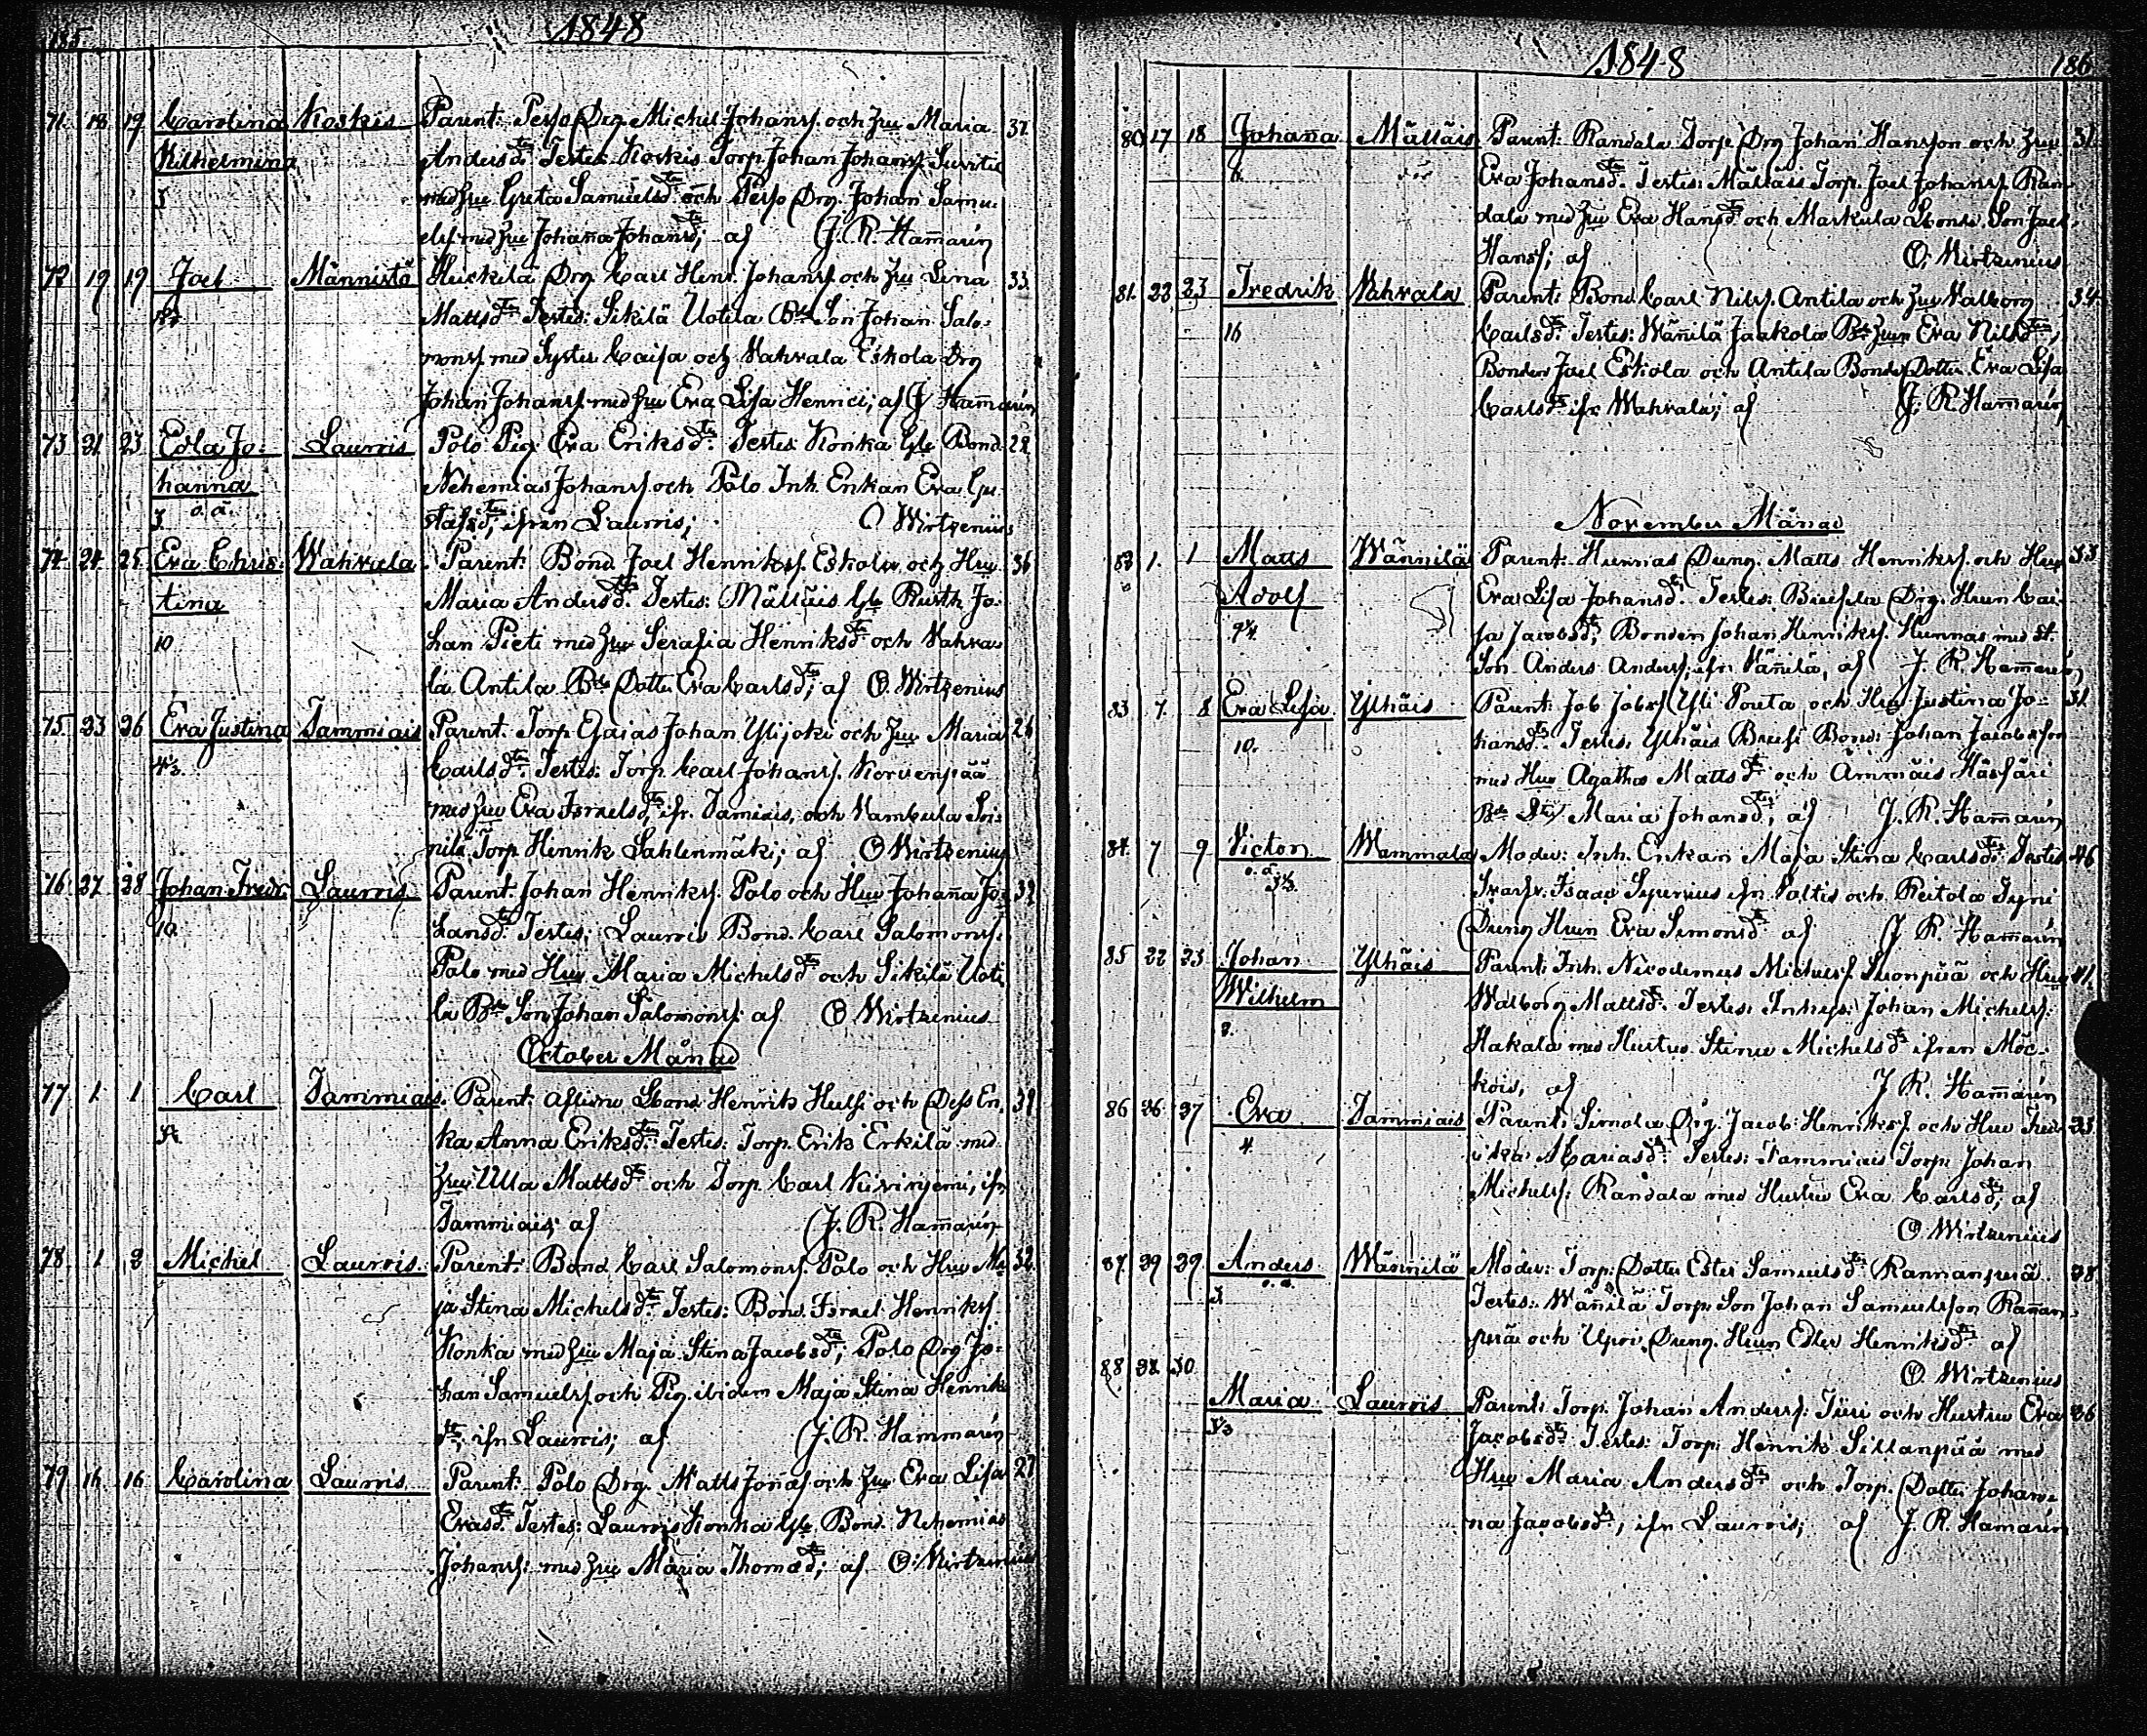 185
1848
71. 18. 19. Carolina Koskis Parent: Perso Drg. Michel Johanss. och Hu Maria 37.
Wilhelmina Andersdtr. Testes: Koskis Torp. Johan Johanss.
med hu Greta Samuelsdtr och Perso Drg. Johan Samu-
elss. med hu Johanna Johansdtr; af J. R. Hammarén
72 19 19 Joel Männistö Huckila Drg Carl Henr. Johanss. och hu Lena 33.
Mattsdtr. Testes: Sikilä Uotila Bde Son Johan Salo-
monss. med Syster Caisa och Wahvala Eskola Drg
Johan Johanss. med hu Eva Lisa Henrici; af J. Hammarén
73 21. 23. Edla Jo- Lauris Polo Pig. Eva Eriksdtr. Testes: Konka Gle Bond. 22
hanna Nehemias Johanss. och Polo Inh. Enkan Eva Gu-
o. ä. stafsdtr, ifrån Lauris; O Wirtzenius
74. 24. 25. Eva Chris- Wahvala Parent: Bond. Joel Henrikss. Eskola och Hu 36
tina Maria Andersdtr. Testes: Mälläis Gle Rusth. Jo-
10 han Pieti med hu Serafia Henriksdtr och Wahva-
la Antila Bde Dotter Eva Carlsdtr; af O. Wirtzenius
75. 23 26 Eva Justina Tammiais Parent. Torp. Esaias Johan Ylijoki och hu Maria 26
Carlsdtr. Testes: Torp. Carl Johanss. Korvenpää
med hu Eva Israelsdtr, ifr. Tamiais, och Kambula Soi-
nila Torp. Henrik Lahlenmäki; af O Wirtzenius
76 27. 28 Johan Fredr. Lauris Parent Johan Henrikss. Polo och Hu Johanna Jo- 32
10. hansdtr. Testes; Lauris Bond. Carl Salomonss.
Polo med Hu Maria Michelsdtr och Sikilä Uoti-
la Bde Son Johan Salomonss: af O Wirtzenius
October Månad
77. 1. 1 Carl Tammiais. Parent: aflidne Bond Henrik Hulsi och Dess En- 39
ka Anna Eriksdtr. Testes: Torp. Erik Erkilä med
hu Ulla Mattsdtr och Torp. Carl Kivirijemi, ifr
Tammiais; af J. R. Hammarén
78 1 2 Michel Lauris. Parent: Bond Carl Salomonss. Polo och Hu Ma- 32
ja Stina Michelsdtr Testes: Bond. Israel Henrikss.
Konka med hu Maja Stina Jacobsdtr; Polo Drg Jo-
han Samuelss. och Pig. ibidem Maja Stina Henriks
dtr, ifr Lauris; af J. R. Hammarén
79 16 16 Carolina Lauris. Parent: Polo Drg. Matts Jonass. och hu Eva Lisa 27
Erasdtr. Testes: Lauris Konka Gle Bond. Nehemias
Johanss: med hu Maria Thomasdtr; af O. Wirtzenius
1848 186
80 17 18 Johanna Mälläis Parent: Randala Torp. Drg Johan Hansson och hu 31.
Eva Johansdtr. Testes: Mällais Torp. Joel Johanss. Ran-
dala med hu Eva Hansdtr och Markula Bonde Son Joel
Hanss; af O. Wirtzenius
81. 22 23 Fredrik Wahvala Parent: Bond Carl Nilss. Antila och hu Walborg 34
16 Carlsdtr. Testes: Wännilä Jaakola Bde hun Eva Nilsdtr,
Bonden Joel Eskola och Antila Bonde Dotter Eva Lisa
Carlsdtr ifr Wahvala; af J. R. Hammarén
November Månad
82 1. 1 Matts Wännilä Parent: Hunnas Dreng. Matts Henrikss. och Hu 33
Adolf Eva Lisa Johansdtr. Testes: Drg. Hun Cai-
sa Jacobsdtr, Bonden Johan Henrikss. Hunnas med
Son Anders Anderss, ifr Wännilä, af J. R. Hammarén
83 7 8 Eva Lisa Ylhäis Parent: Job Jobss. Yli Pouta och Hu Justina Jo- 31.
10. hansdtr. Testes. Ylhäis Bond: Johan Jacobsson
med Hu Agatha Mattsdtr och Ämmäis
Bde Maria Johansdtr, af J. R. Hammarén
84. 7 9 Victor Wammala Moder: Inh. Enkan Maja Stina Carlsdtr. Testes 46
o. ä. Isaac ifr Soltis och Reitola Tyni
Dreng Hun Eva Simonsdtr af J R. Hammarén
85 22 23 Johan Ylhäis Parent: Inh. Nicodemus Michelss. och Hu 41.
Wilhelm Walborg Mattsdtr. Testes: Inhys: Johan Michelss:
Hakala med Hustru Stina Michelsdtr ifrån Moc-
kois, af J R. Hammarén
86 26 27 Eva Tammiais Parent: Simola Drg. Jacob Henrikss och Hu Fred- 23
4 rika Mariasdtr. Testes: Tammiais Torp. Johan
Michelss: Randala med Hustru Eva Carlsdtr, af
O Wirtzenius
87. 29 29 Anders Wännilä Moder: Torp. Dotter Ester Samuelsdtr Rannanperä. 28
o. ä. Testes: Wännilä Torp. Son Johan Samuelsson Rannan-
perä och Dreng. Hun Ester Henriksdtr af
88 28 30 O Wirtzenius
Maria Lauris Parent: Torp. Johan Anderss: och Hustru Eva 26
Jacobsdtr Testes: Torp. Henrik Sillanpää med
Hu Maria Andersdtr och Torp. Dotter Johan-
na Jacobsdtr, ifr Lauris; af J. R. Hammarén